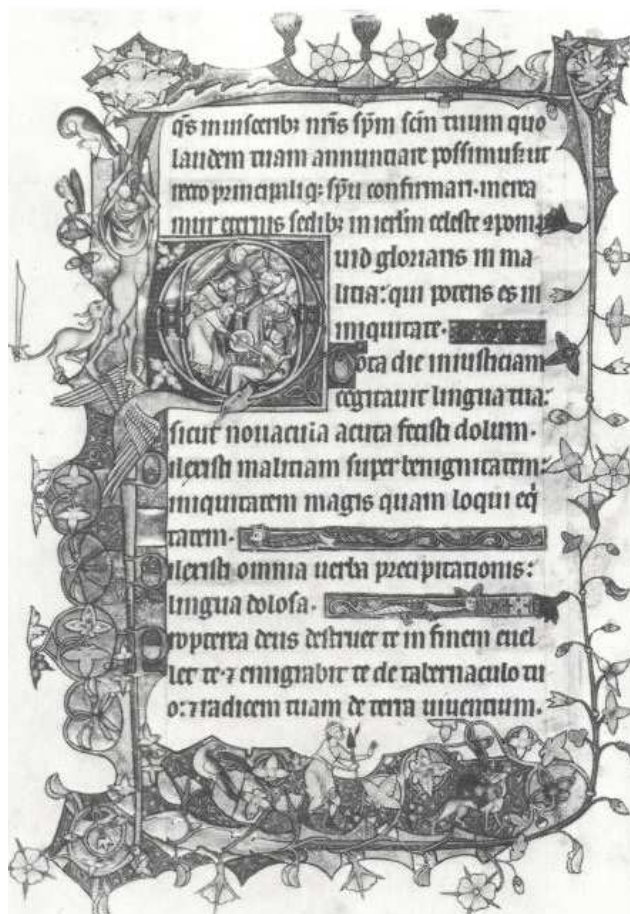 q̄s in uisceribȝ nr̄is sp̄m sc̄m tuum quo
laudem tuam annunciare possimus: ut
recto principaliqȝ sp̄u confirmari. merea
mur eternis sedibȝ in ierl̄m celeste
Quid gloriaris in ma
litia: qui potens es in
iniquitate.
Tota die iniusticiam
cogitauit lingua tua:
sicut nouacula acuta fecisti dolum.
Dilexisti malitiam super benignitatem:
iniquitatem magis quam loqui eq̄
tatem.
Dilexisti omnia uerba precipitationis:
lingua dolosa.
Propterea deus destruet te in finem euel
let te. ⁊ emigrabit te de tabernaculo tu
o: ⁊ radicem tuam de terra uiuentium.